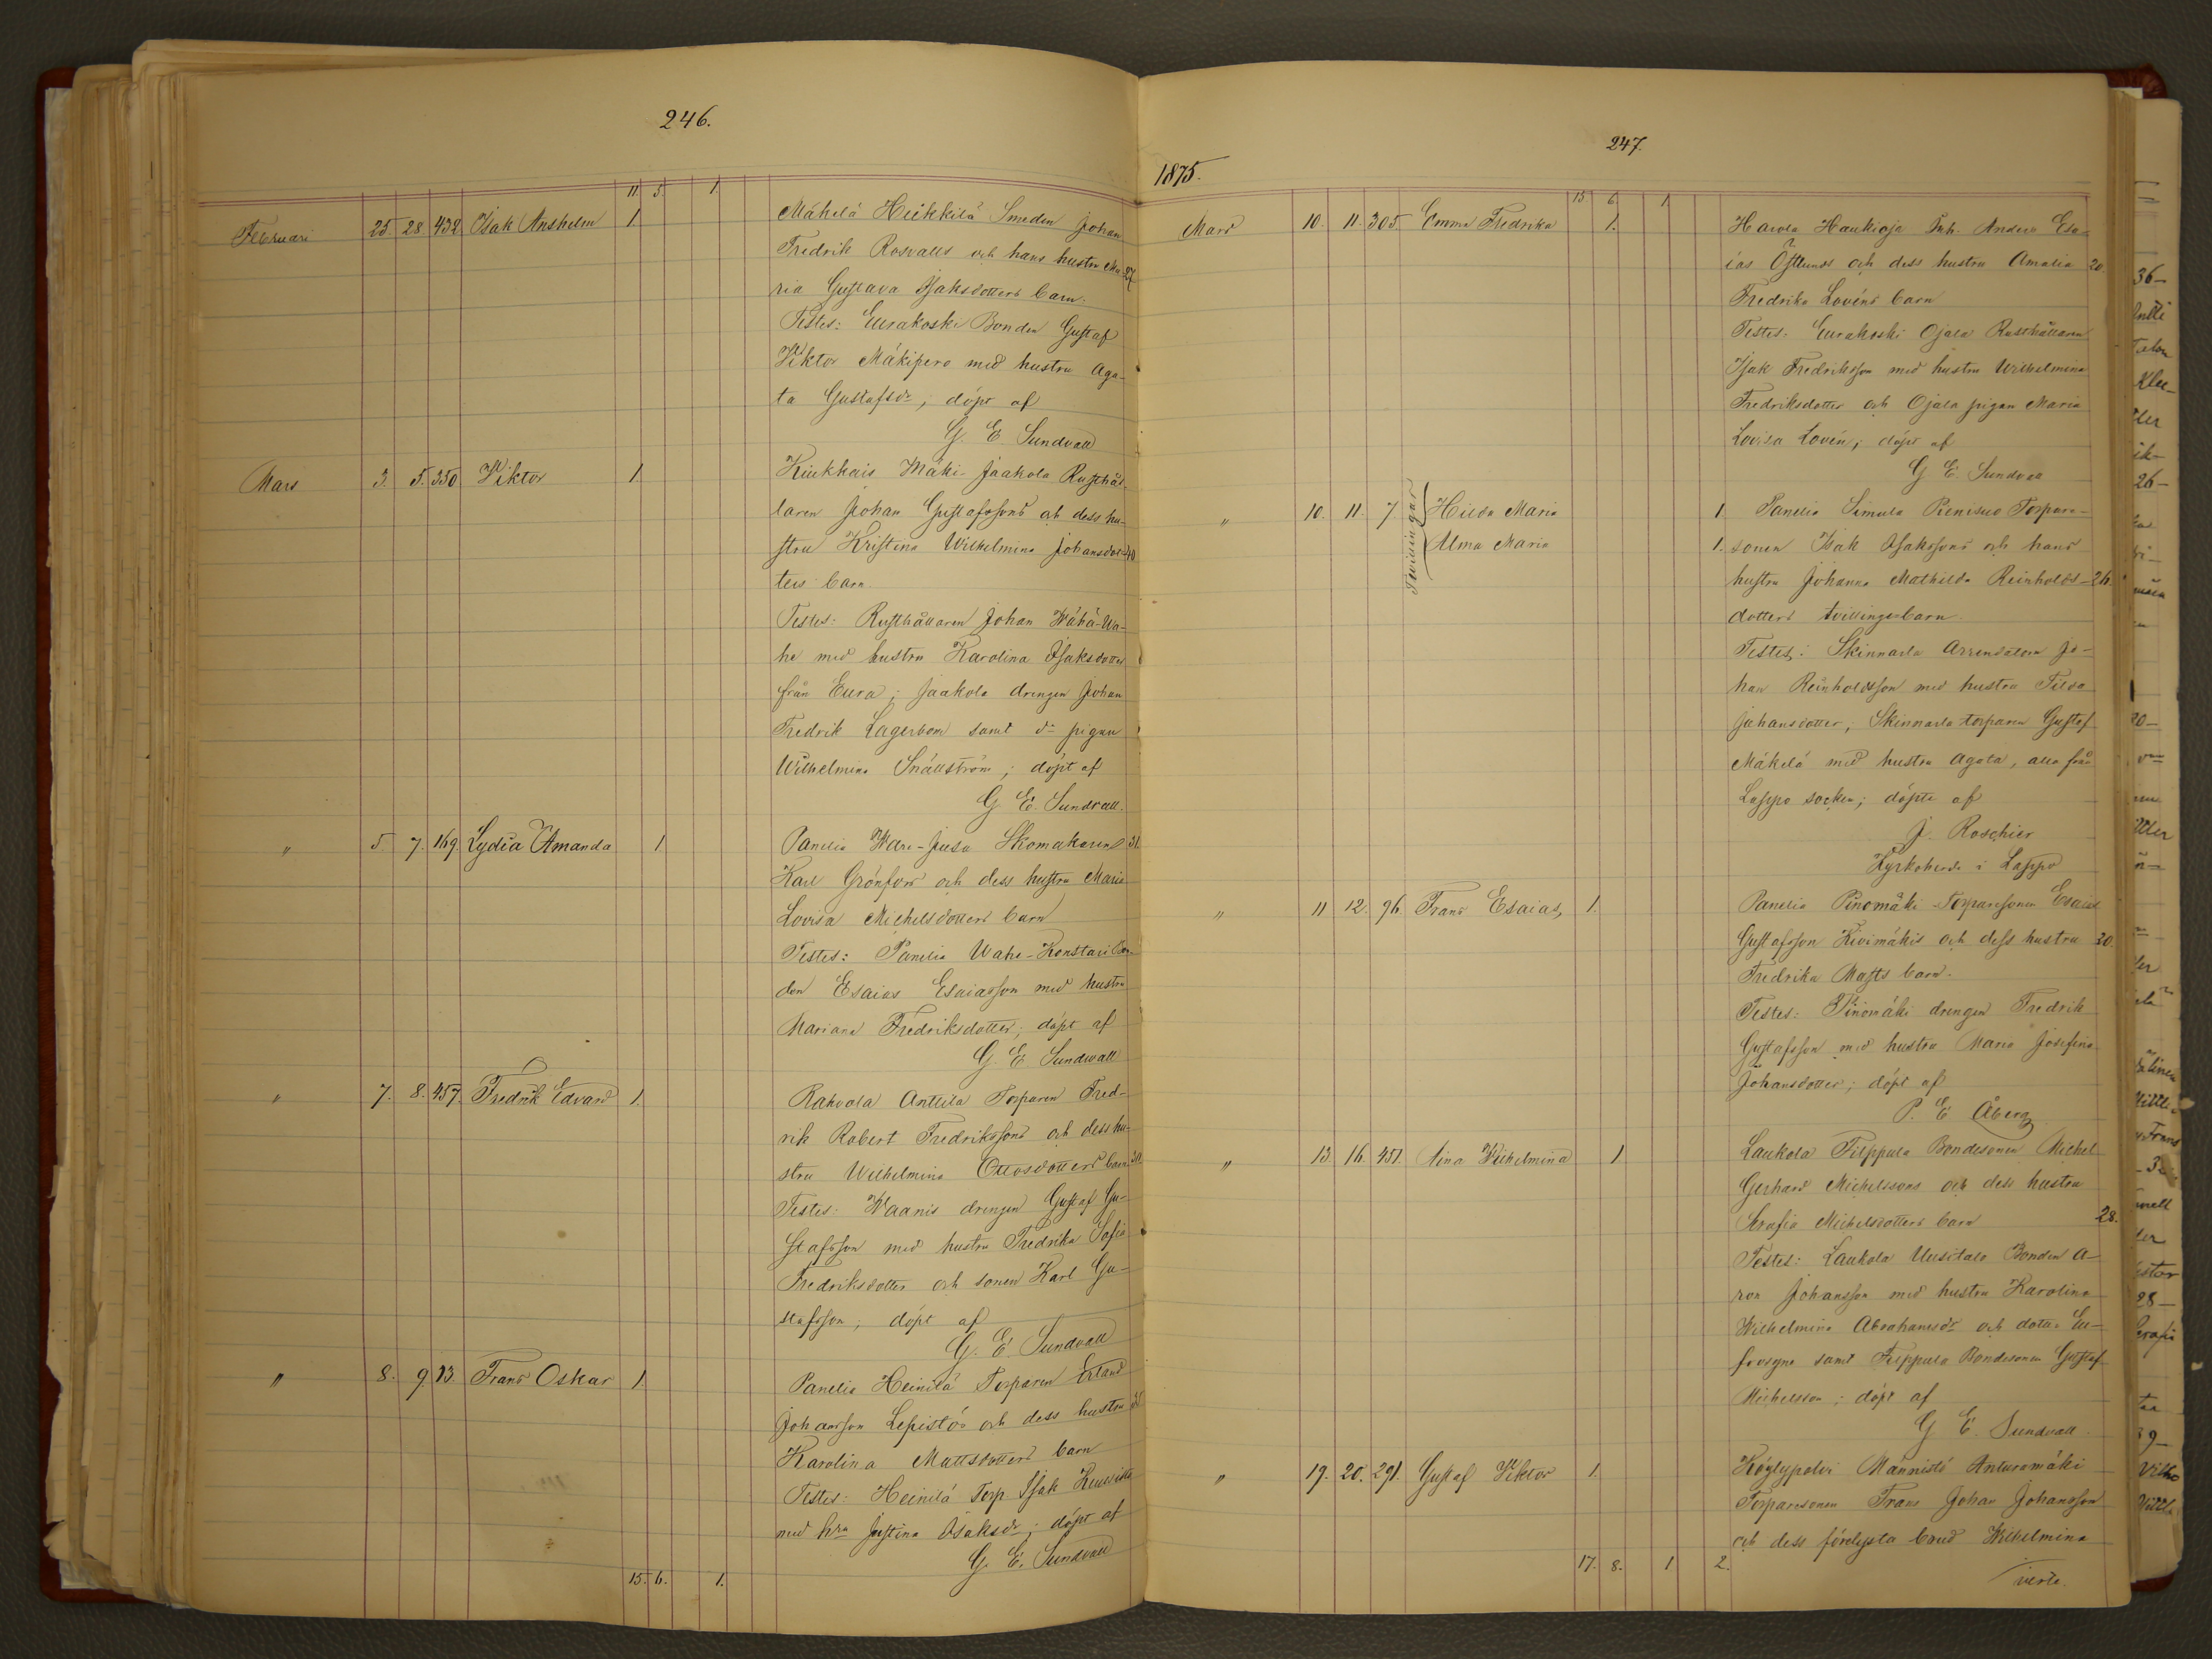 246.
11. 5. 1.
Februari 25. 28. 432 Isak Anshelm 1. Mäkelä Heikkilä Smeden Johan
Fredrik Rosvalls och hans hustru Ma- 27
ria Gustava Isaksdotters barn.
Testes: Eurakoski Bonden Gustaf
Viktor Mäkipere med hustru Aga-
ta Gustafsdr, döpt af
G. E. Sundvall
Mars 3. 5. 350 Viktor 1 Kiukkais Mäki-Jaakola Rusthål-
laren Johan Gustafssons och dess hu-
stru Kristina Wilhelmina Johansdot- 40
ters barn.
Testes: Rusthållaren Johan Wähä-Wa-
he med hustru Karolina Isaksdotter
från Eura; Jaakola drengen Johan
Fredrik Lagerbom samt do pigan
Wilhelmina Snällström; döpt af
G. E. Sundvall.
" 5. 7. 169. Lydia Amanda 1 Panelia Juusa Skomakaren 31.
Karl Grönfors och dess hustru Maria
Lovisa Michelsdotters barn
Testes: Panelia Wahe-Konstari Bon-
den Esaias Esaiasson med hustru
Mariana Fredriksdotter; döpt af
G. E. Sundwall
" 7. 8. 457. Fredrik Edvard 1. Rahvola Anttila Torparen Fred-
rik Robert Fredrikssons och dess hu-
stru Wilhelmina Ottosdotters barn
Testes: Waanis drengen Gustaf Gu-
stafsson med hustru Fredrika Sofia
Fredriksdotter och sonen Karl Gu-
stafsson; döpt af
G. E. Sundvall
" 8. 9 13. Frans Oskar 1. Panelia Heinilä Torparen Erland
Johansson Lepistös och dess hustru
Karolina Mattsdotters barn
Testes: Heinilä Torp. Isak
med hru Justina Isaksdr; döpt af
G. E. Sundvall
15. 6. 1.
247.
1875.
15 6. 1
Mars 10. 11. 305. Emma Fredrika 1. Harola Haukioja Inh. Anders Esa-
ias Östlunds och dess hustru Amalia 20.
Fredrika Lovéns barn
Testes: Eurakoski Ojala Rusthållaren
Isak Fredriksson med hustru Wilhelmina
Fredriksdotter och Ojala pigan Maria
Lovisa Lovén; döpt af
G E. Sundvall
" 10. 11. 7 Tvillingar Hilda Maria 1. Panelia Simula Pienisuo Torpare-
Alma Maria 1. sonen Isak Isakssons och hans
hustru Johanna Mathilda Reinholds- 26.
dotters tvillingebarn.
Testes: Skinnarla Arrendatorn Jo-
han Reinholdsson med hustru Tilda
Johansdotter; Skinnarla torparen Gustaf
Mäkelä med hustru Agata, alla från
Lappo socken; döpte af
J. Roschier
Kyrkoherde i Lappo
" 11 12. 96. Frans Esaias, 1. Panelia Pinomäki Torparesonen Esaias
Gustafsson Kivimäkis och dess hustru 30.
Fredrika Matts barn.
Testes: Pinomäki drengen Fredrik
Gustafsson med hustru Maria Josefina
Johansdotter; döpt af
P. E Åberg
" 13 16. 451. Aina Wilhelmina 1 Laukola Filppula Bondesonen Michel
Gerhard Michelssons och dess hustru
Serafia Michelsdotters barn 28.
Testes: Laukola Uusitalo Bonden A-
ron Johansson med hustru Karolina
Wilhelmina Abrahamsdr och dotter Eu-
frosyne samt Filppula Bondesonen Gustaf
Michelsson; döpt af
G E. Sundvall.
" 19. 20. 291. Gustaf Viktor 1. Köylypolvi Männistö Anturamäki
Torparesonen Frans Johan Johansson
och dess förelysta brud Wilhelmina
17. 8. 1 2. verte.